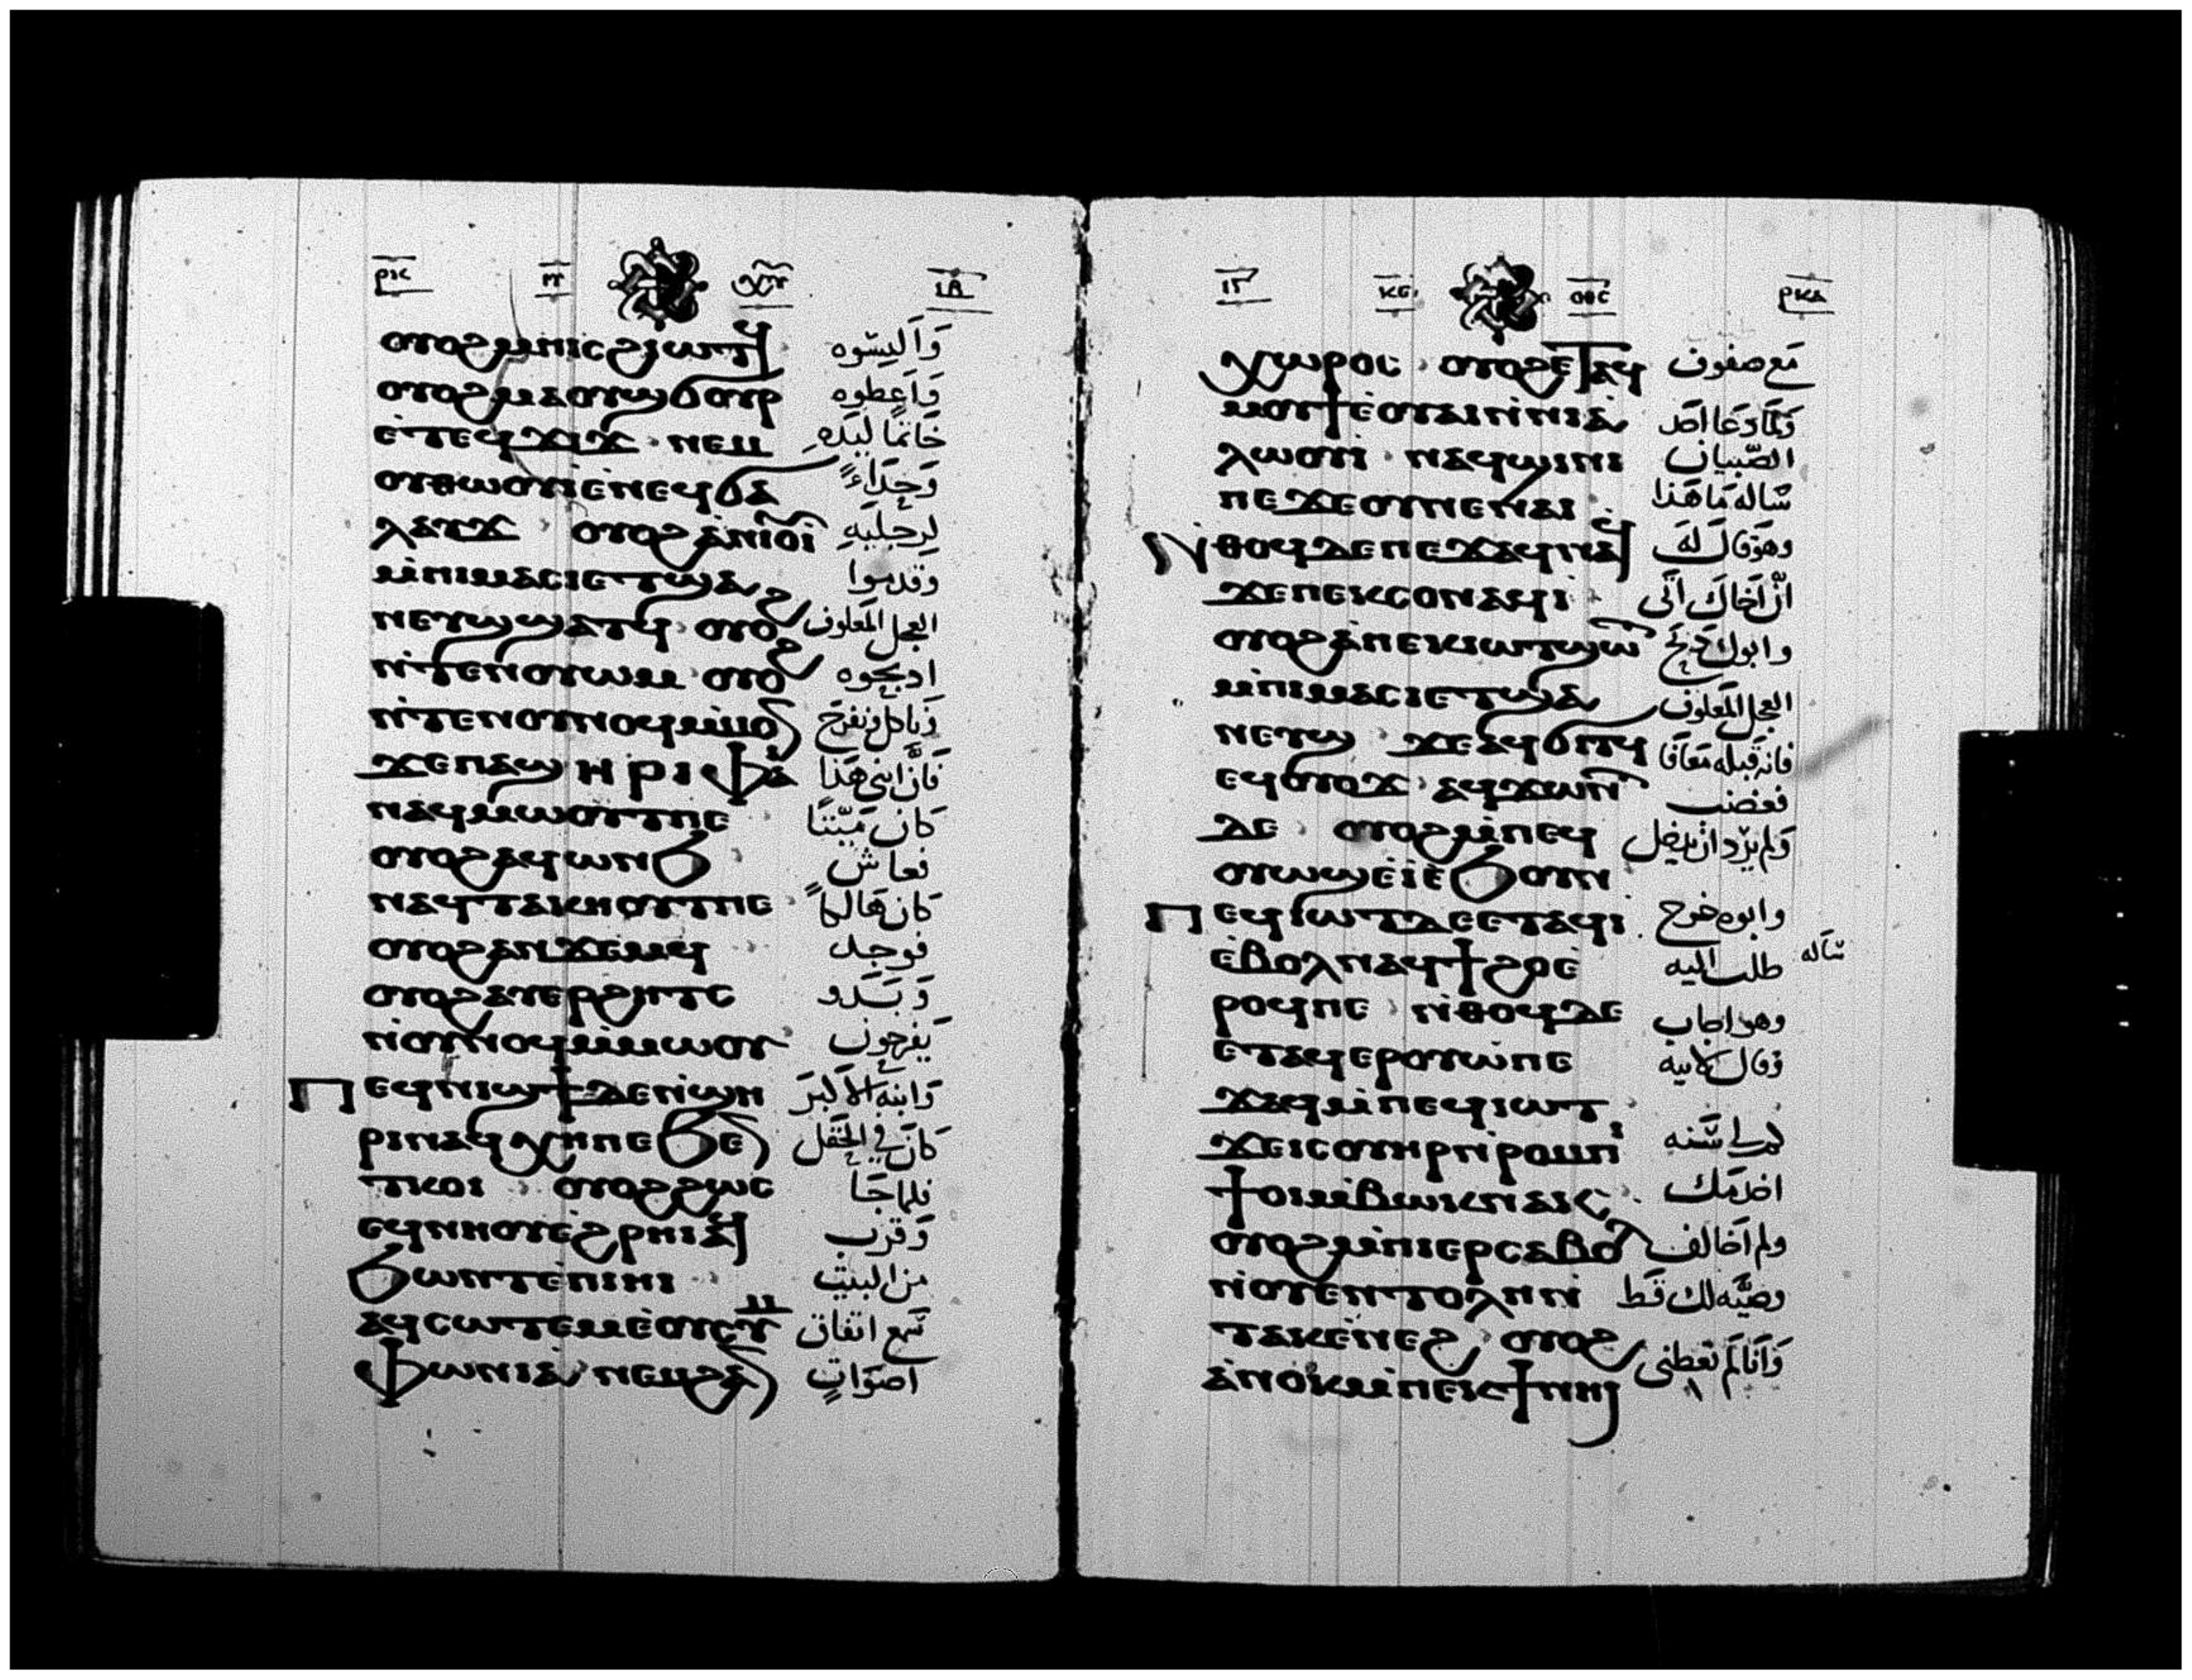 ⲟⲩⲟϩ ⲙⲏⲓⲥ ϩⲓⲱⲧϥ وَاَلبِسُوه
ⲟⲩⲟϩ ⲙⲁ ⲟⲩϣϭⲟⲩⲣ وَاَعطوه
ⲉ̀ⲧⲉϥϫⲓϫ ⲛⲉⲙ خَاتمًا ليَدهِ
ⲟⲩⲑⲱⲟⲩⲓ̀ ⲉ̀ⲛⲉϥϭⲁ وَحِذَاءً
ⲗⲁⲩϫ ⲟⲩⲟϩ ⲁ̀ⲛⲓⲟⲩⲓ̀ لِرجليَهِ
ⲙ̀ⲡⲓⲙⲁⲥⲓ ⲉⲧϣⲁ وقدموا
ⲛⲉⲩϣ ϣⲁⲧϥ ⲟⲩⲟϩ العجل المَعلوف
ⲛ̀ⲧⲉⲛⲟⲩⲱⲙ ⲟⲩⲟϩ اذبحوه
ⲛ̀ⲧⲉⲛⲟⲩⲛⲟϥ ⲙ̀ⲙⲟⲛ وَناكل ونفرَح
ϫⲉ ⲡⲁϣⲏⲣⲓ ⲫⲁⲓ فَانَّ ابنى هَذا
ⲛⲁϥⲙⲱⲟⲩⲧ ⲡⲉ كانَ مَيّتًا
ⲟⲩⲟϩ ⲁϥⲱⲛϧ فعاش
ⲛⲁϥⲧⲁⲕⲏⲟⲩⲧ ⲡⲉ كان هَالكاً
ⲟⲩⲟϩ ⲁⲛϫⲉⲙϥ فوجد
ⲟⲩⲟϩ ⲁⲩⲉⲣϩⲏⲧⲥ وَبَدَو
ⲛ̀ⲟⲩⲛⲟϥ ⲙ̀ⲙⲱⲟⲩ يَفرحون
ⲡⲉϥⲛⲓϣϯ ⲇⲉ ⲛ̀ϣⲏ وَابنه الاَكبَر
ⲣⲓ ⲛⲁϥⲭⲏ ⲡⲉ ϧⲉⲛ كانَ في الحَقل
ⲧⲕⲟⲓ ⲟⲩⲟϩ ϩⲱⲥ فلما جَا
ⲉϥⲛⲏⲟⲩ ⲉ̀ϩⲣⲏⲓ ⲁϥ وَقربَ
ϧⲱⲛⲧ ⲉ̀ⲡⲓⲏⲓ من البيت
ⲁϥⲥⲱⲧⲉⲙ ⲉ̀ⲟⲩⲥⲩⲙ سَمع اتفاق
ⲫⲱⲛⲓⲁ ⲛⲉⲙ ϩⲁⲛ اصوَاتٍ
ⲭⲱⲣⲟⲥ ⲟⲩⲟϩ ⲉⲧⲁϥ مَع صفوف
ⲙⲟⲩϯ ⲉ̀ⲟⲩⲁⲓ ⲛ̀ⲛⲓⲁ̀ وَلمّا دَعَا احَد
ⲗⲱⲟⲩⲓ̀ ⲛⲁϥϣⲓⲛⲓ الصّبيان
ⲡⲉ ϫⲉ ⲟⲩ ⲡⲉ ⲛⲁⲓ سَاله مَا هَذا
ⲛ̀ⲑⲟϥ ⲇⲉ ⲡⲉϫⲁϥ ⲛⲁϥ وهوَ قالَ لَهَ
ϫⲉ ⲡⲉⲕⲥⲟⲛ ⲁϥⲓ̀ انّ اَخاكَ اتَى
ⲟⲩⲟϩ ⲁ̀ⲡⲉⲕⲓⲱⲧ ϣⲱⲧ وابوك ذبَح
ⲙ̀ⲡⲓⲙⲁⲥⲓ ⲉⲧϣⲁ العجل المَعلوف
ⲛⲉⲩϣ ϫⲉ ⲁϥϭⲓⲧϥ فانه قَبله مَعَافَا
ⲉϥⲟⲩⲟϫ ⲁϥϫⲱⲛⲧ فغضب
ⲇⲉ ⲟⲩⲟϩ ⲙ̀ⲡⲉϥ وَلم يرّد ان يدخل
ⲟⲩⲱϣ ⲉ̀ⲓ̀ ⲉ̀ϧⲟⲩⲛ
ⲡⲉϥⲓⲱⲧ ⲇⲉ ⲉⲧⲁϥⲓ̀ وابوه خرج
ⲉ̀ⲃⲟⲗ ⲛⲁϥϯϩⲟ ⲉ̀ طلب اليه سَاَله
ⲣⲟϥ ⲡⲉ ⲛ̀ⲑⲟϥ ⲇⲉ وهو اجاب
ⲉ̀ⲧⲁϥⲉⲣⲟⲩⲱ̀ ⲡⲉ وَقال لابيه
ϫⲁϥ ⲙ̀ⲡⲉϥⲓⲱⲧ
ϫⲉ ⲓⲥ ⲟⲩⲏⲣ ⲛ̀ⲣⲟⲙⲡⲓ كم لى سَنه
ϯⲟⲓ ⲙ̀ⲃⲱⲕ ⲛⲁⲕ اخدمَك
ⲟⲩⲟϩ ⲙ̀ⲡⲓⲉⲣⲥⲁⲃⲟⲗ ولم اَخالف
ⲛ̀ⲟⲩⲉⲛⲧⲟⲗⲏ ⲛ̀ وصيَّه لك قَط
ⲧⲁⲕ ⲉ̀ⲛⲉϩ ⲟⲩⲟϩ
ⲁ̀ⲛⲟⲕ ⲙ̀ⲡⲉⲕϯ ⲛⲏⲓ وَاَنا لَم تعطنى